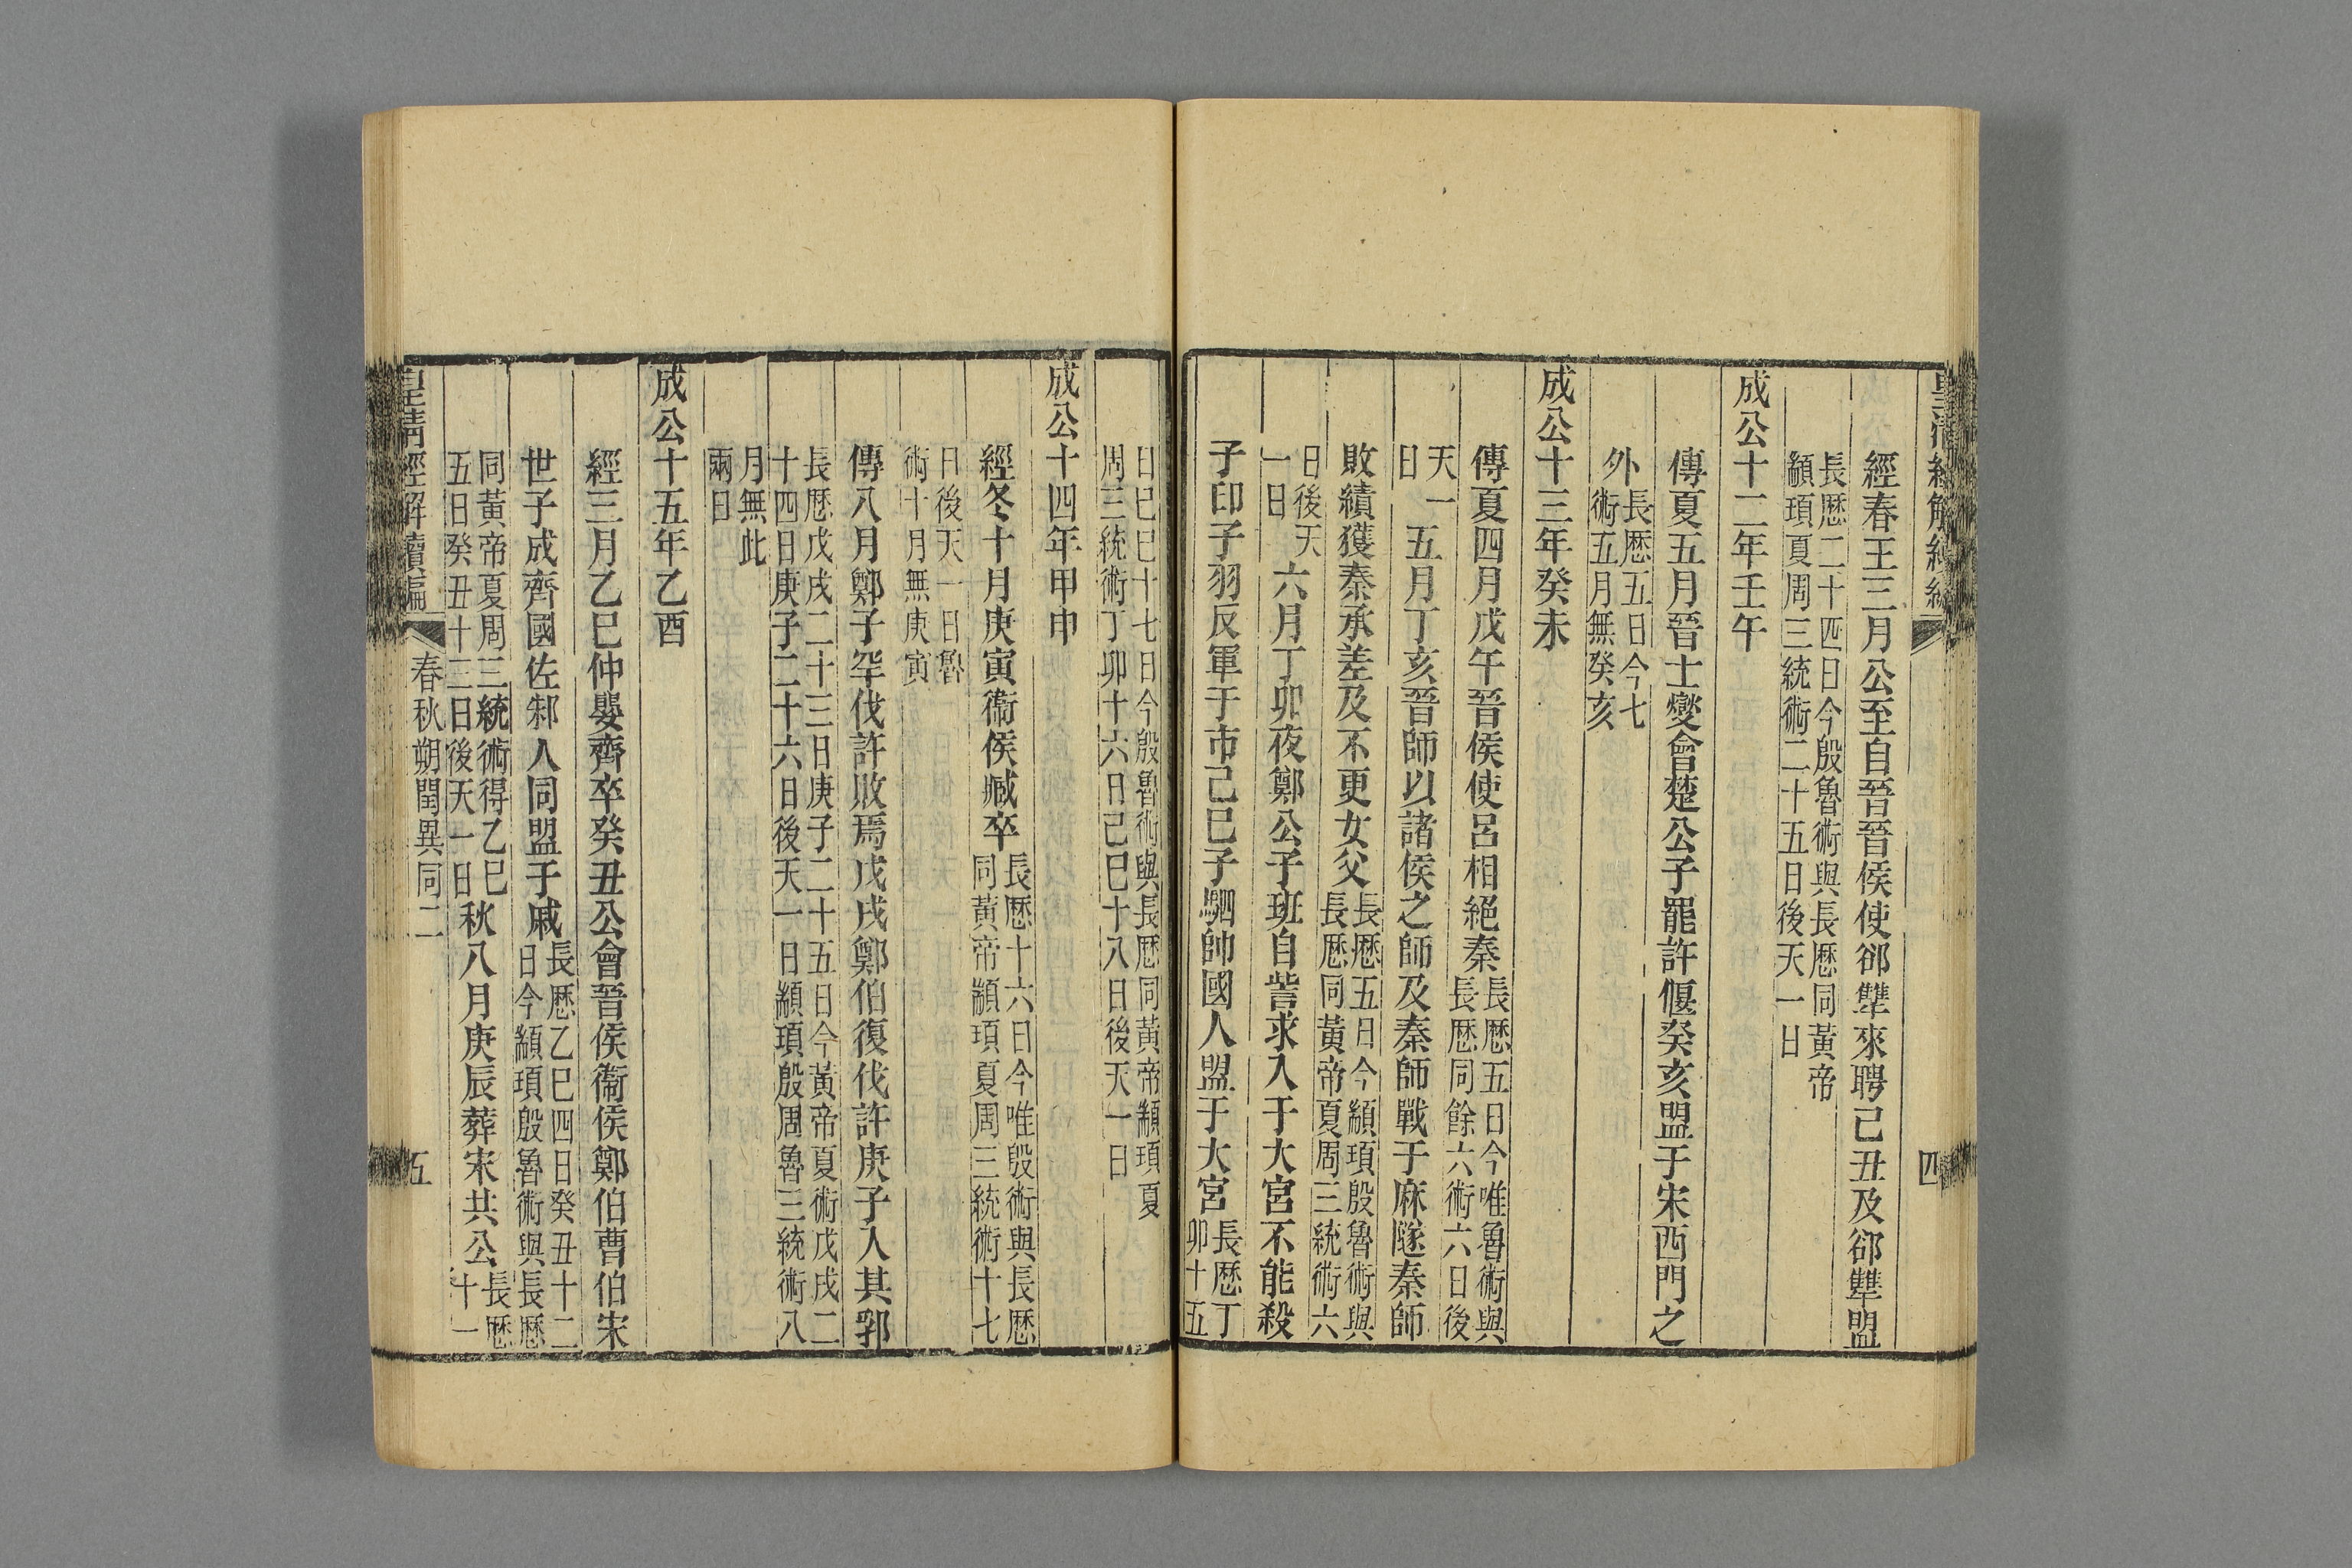 經春王三月公至自晉晉侯使郤犨來聘己丑及郤犨盟
長厤二十四日今殷魯術與長厤同黃帝
顓頊夏周三統術二十五日後天一日
成公十二年壬午
傳夏五月晉士燮會楚公子罷許偃癸亥盟于宋西門之
外
長厤五日今七
術五月無癸亥
成公十三年癸未
傳夏四月戊午晉侯使呂相絕秦
長厤五日今唯魯術與
長厤同餘六術六日後
天一
日
五月丁亥晉師以諸侯之師及秦師戰于麻隧秦師
敗績獲秦承差及不更女父
長厤五日今顓頊殷魯術與
長厤同黃帝夏周三統術六
日後天
一日
六月丁卯夜鄭公子班自訾求入于大宮不能殺
子印子羽反軍于市己巳子駟帥國人盟于大宮
長厤丁
卯十五
日己巳十七日今殷魯術與長厤同黃帝顓頊夏
周三統術丁卯十六日己巳十八日後天一日
成公十四年甲申
經冬十月庚寅衞侯臧卒
長厤十六日今唯殷術與長厤
同黃帝顓頊夏周三統術十七
日後天一日魯
術十月無庚寅
傳八月鄭子罕伐許敗焉戊戌鄭伯復伐許庚子入其郛
長厤戊戌二十三日庚子二十五日今黃帝夏術戊戌二
十四日庚子二十六日後天一日顓頊殷周魯三統術八
月無此
兩日
成公十五年乙酉
經三月乙巳仲嬰齊卒癸丑公會晉侯衞侯鄭伯曹伯宋
世子成齊國佐邾人同盟于戚
長厤乙巳四日癸丑十二
日今顓頊殷魯術與長厤
同黃帝夏周三統術得乙巳
五日癸丑十三日後天一日
秋八月庚辰葬宋共公
長厤
十一
皇清經解續編
春秋朔閏異同二
五